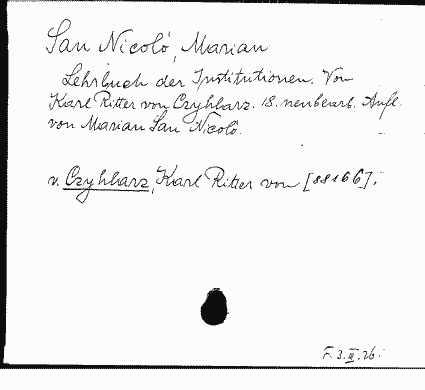 San Nicolò, Marian
Lehrbuch der Institutionen. Von
Karl Ritter von Czyhlarz. 18. neubearb. Aufl.
von Marian San Nicolò.
v. Czyhlarz, Karl Ritter von [88166].
F. 3. III. 26.